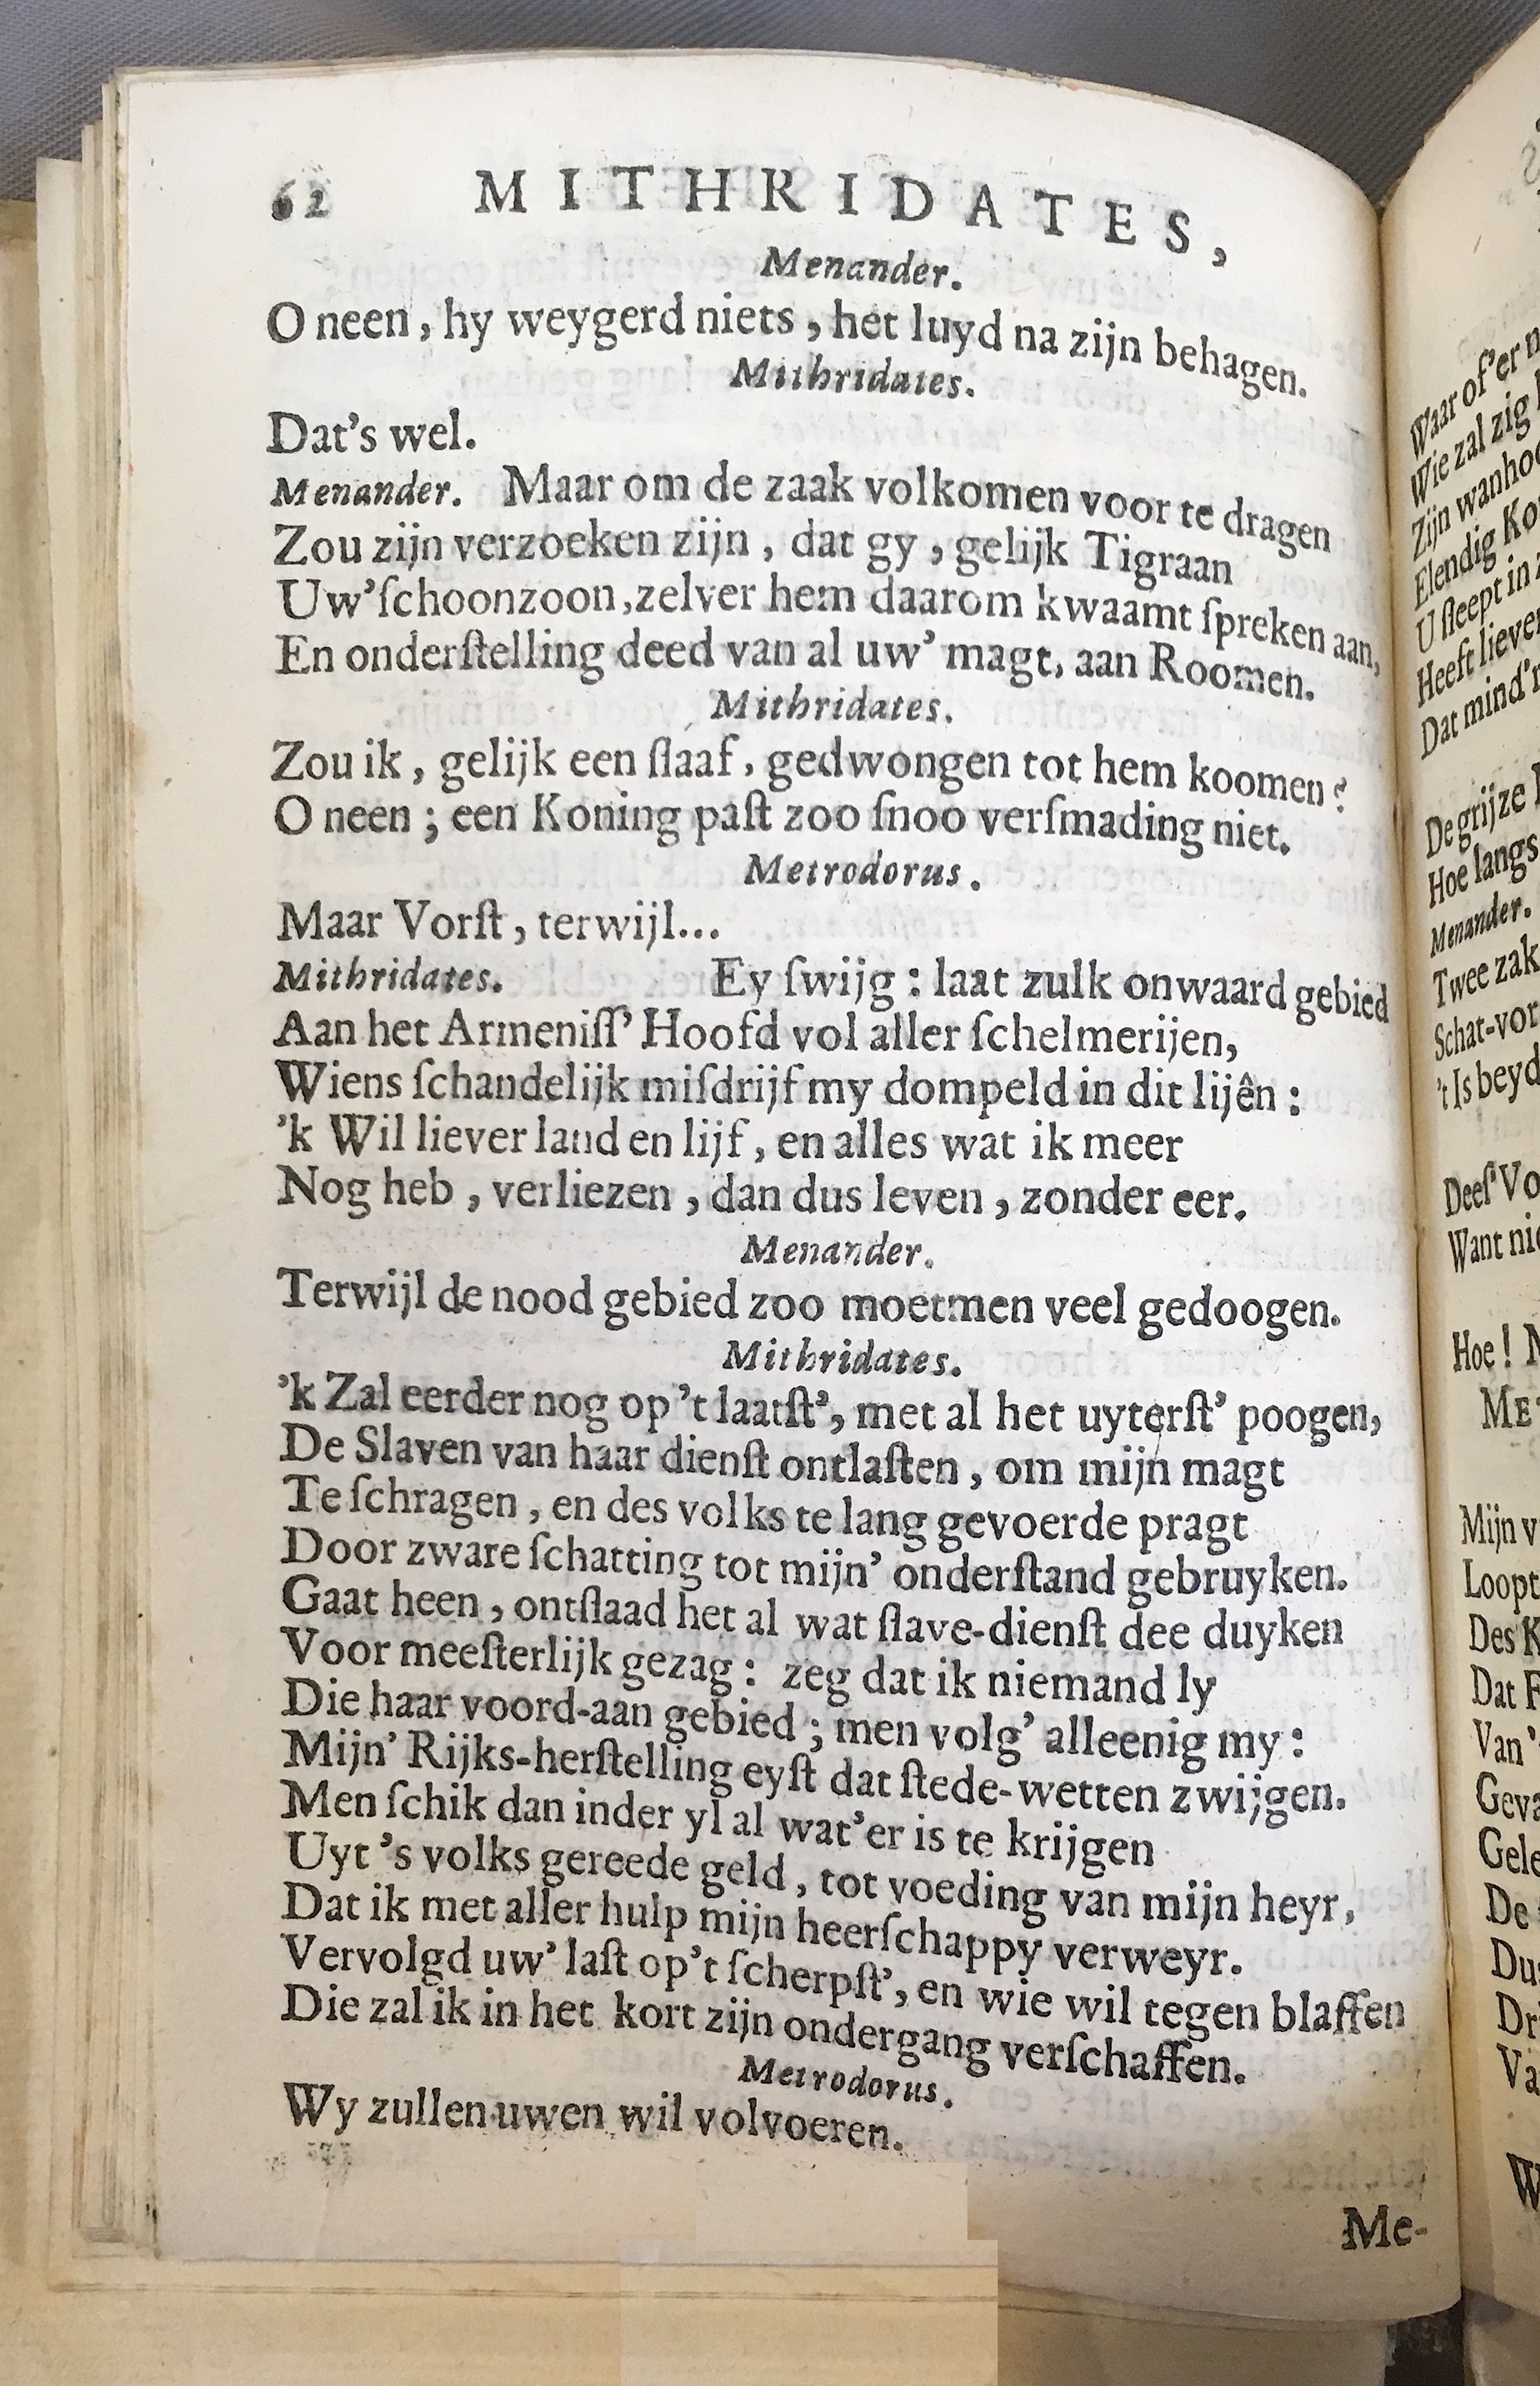 62 MITHRIDATES,
Menander.
O neen, hy weygerd niets, het luyd na zijn behagen.
Mithridates.
Dat's wel.
Menander. Maar om de zaak volkomen voor te dragen
Zou zijn verzoeken zijn, dat gy, gelijk Tigraan
Uw'ſchoonzoon, zelver hem daarom kwaamt ſpreken aan,
En onderſtelling deed van al uw' magt, aan Roomen.
Mithridates.
Zou ik, gelijk een ſlaaf, gedwongen tot hem koomen?
O neen; een Koning paſt zoo ſnoo verſmading niet.
Metrodorus.
Maar Vorſt, terwijl...
Mithridates. Ey ſwijg: laat zulk onwaard gebied
Aan het Armeniſſ' Hoofd vol aller ſchelmerijen,
Wiens ſchandelijk miſdrijf my dompeld in dit lijên:
'k Wil liever land en lijf, en alles wat ik meer
Nog heb, verliezen, dan dus leven, zonder eer.
Menander.
Terwijl de nood gebied zoo moetmen veel gedoogen.
Mithridates.
'k Zal eerder nog op 't laatſt', met al het uyterſt' poogen,
De Slaven van haar dienſt ontlaſten, om mijn magt
Te ſchragen, en des volks te lang gevoerde pragt
Door zware ſchatting tot mijn' onderſtand gebruyken.
Gaat heen, ontſlaad het al wat ſlave-dienſt dee duyken
Voor meeſterlijk gezag: zeg dat ik niemand ly
Die haar voord-aan gebied; men volg' alleenig my:
Mijn' Rijks-herſtelling eyſt dat ſtede-wetten zwijgen.
Men ſchik dan inder yl al wat'er is te krijgen
Uyt 's volks gereede geld, tot voeding van mijn heyr,
Dat ik met aller hulp mijn heerſchappy verweyr.
Vervolgd uw' laſt op't ſcherpſt', en wie wil tegen blaffen
Die zal ik in het kort zijn ondergang verſchaffen.
Metrodorus.
Wy zullen uwen wil volvoeren.
Me-
Waar of'er
Wie zal zig
Zijn
Elendig
U ſleept in
Heeft
Dat mind'r
De grijze
Hoe langs
Menander.
Twee
Schat-
't Is
Deeſ'
Want
Hoe!
Mijn
Loopt
Des
Dat
Van
De